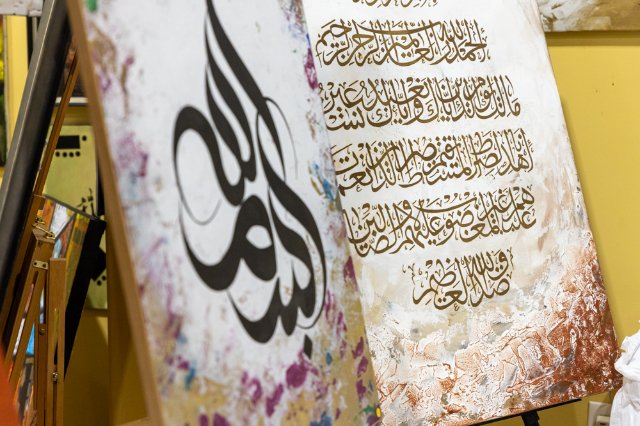 بسم الله
الحمد لله رب العالمين الرحمن الرحيم
مالك يوم الدين إياك نعبد وإياك نستعين
اهدنا الصراط المستقيم صراط الذين أنعمت
عليهم غير المغضوب عليهم ولا الضالين
صدق الله العظيم